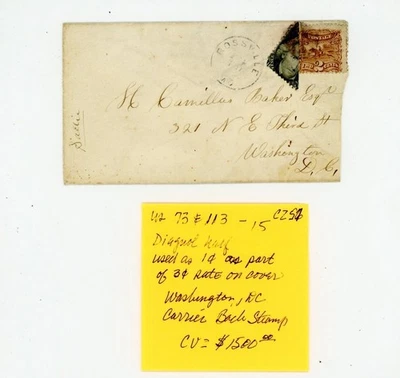 ROSSVILLE
2
H Camillus Baker Esqr
321 N E Third St
Washington
D. C.
Sadie
US 73 & 113 - 15
Diagnol half
used as 1¢ as part
of 3¢ Rate on cover
Washington, DC
Carrier Back Stamp
CV = $1500 00